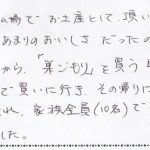 ム場で お土産として、頂い
あまりのおいしさ だったの
から、「巣ごもり」を買う
で買いに行き、その帰りに
れ、家族全員(10名)で
した。